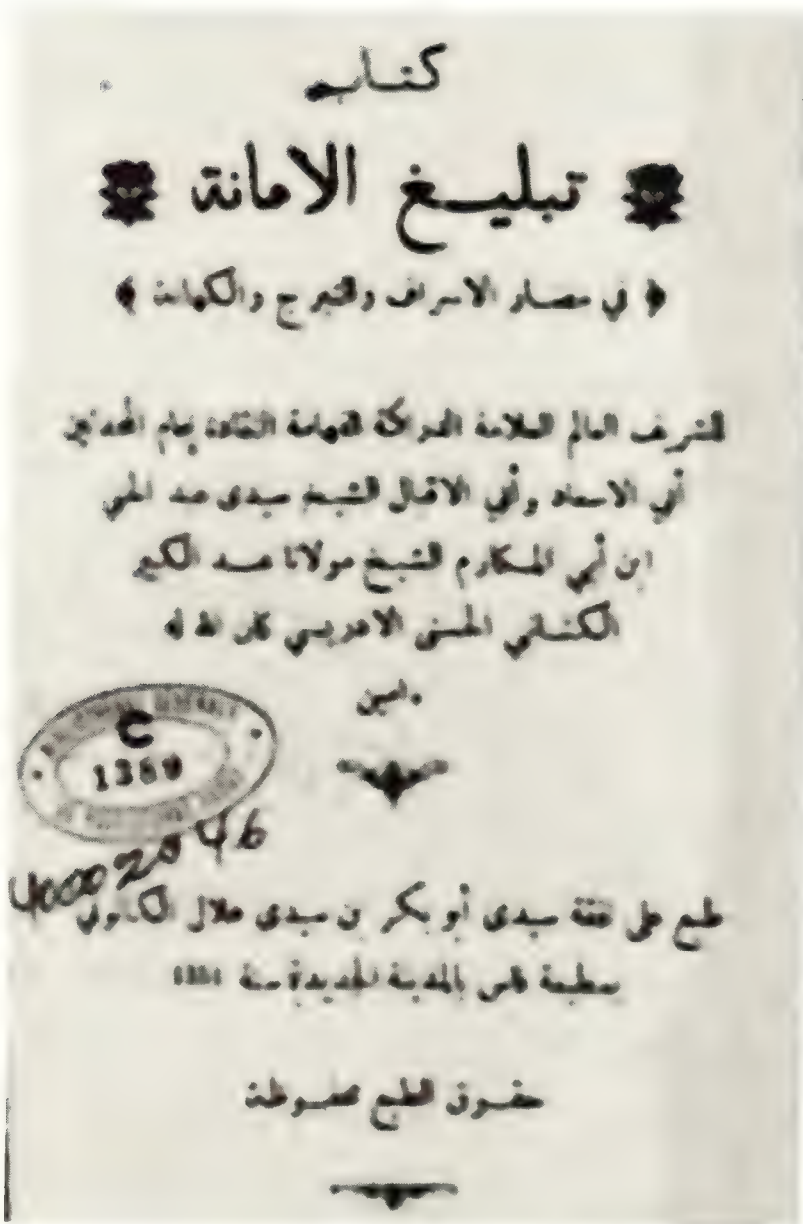 كتاب
تبليغ الامانة
﴿ في مضار الاسراف والتبرج والكهانة ﴾
للشريف العالم العلامة الدراكة الفهامة النقادة إمام المحدثين
أبي الاسعاد وأبي الاقبال الشيخ سيدي عبد الحي
ابن أبي المكارم الشيخ مولانا عبد الكبير
الكتاني الحسني الادريسي كان الله له
ءامين
ح
1369
40002046
طبع على نفقة سيدي أبو بكر بن سيدي جلال الكانوني
بمطبعة فاس بالمدينة الجديدة سنة 1351
حقوق الطبع محفوظة